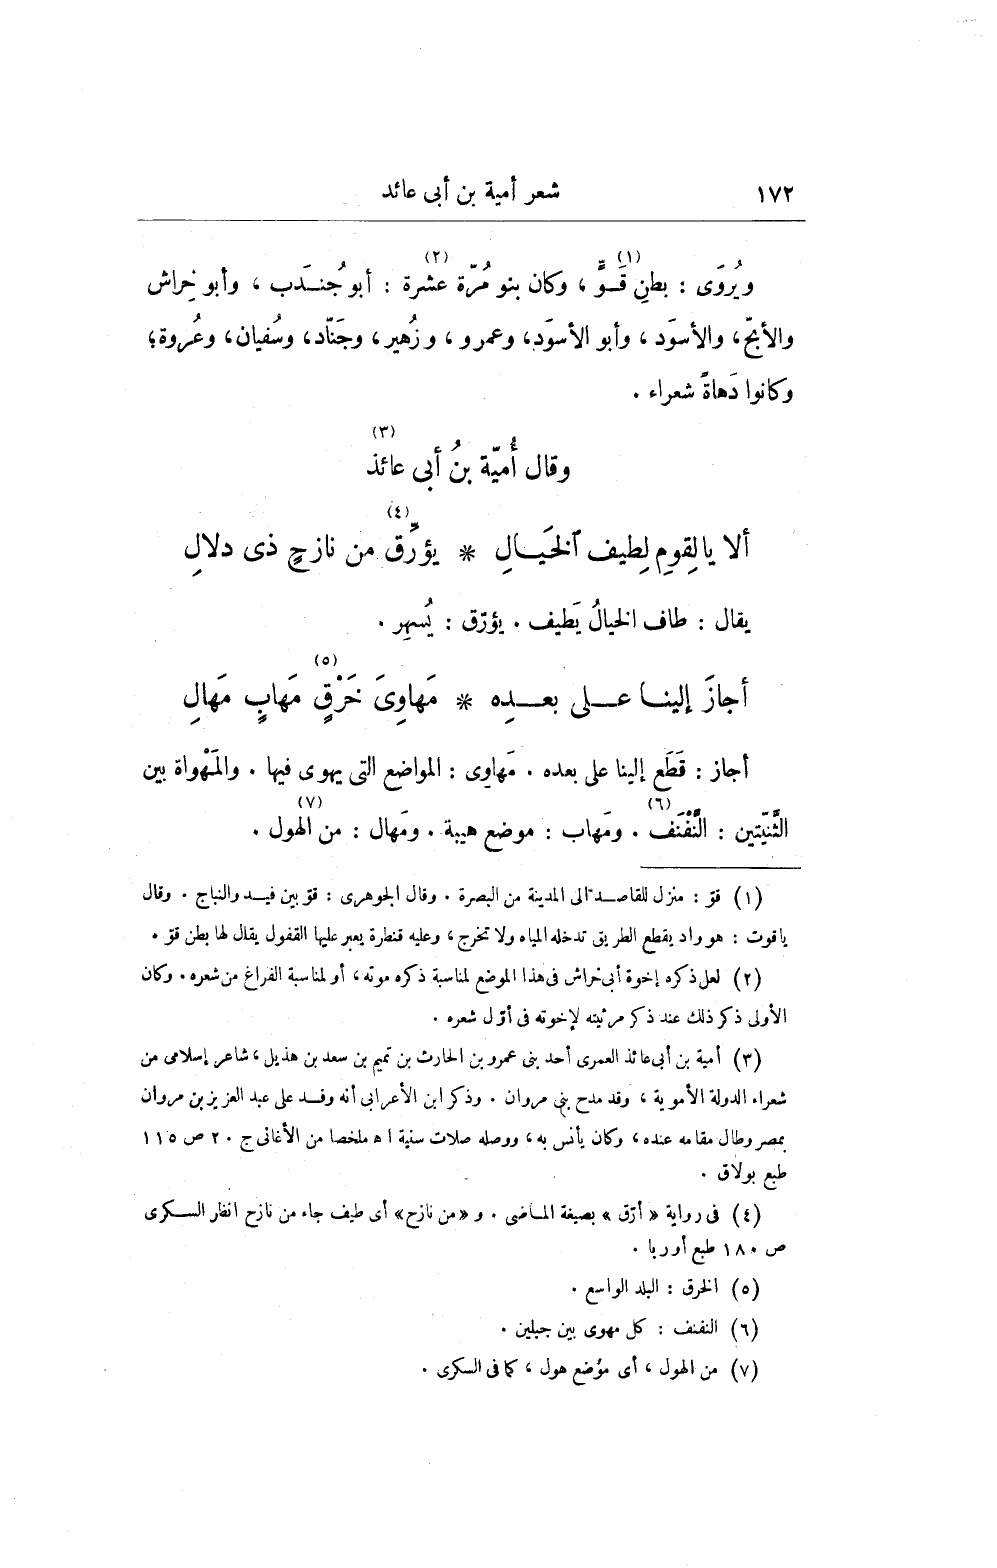 ١٧٢ شعر أمية بن أبى عائد
ويُروَى : بطنِ قَــوٍّ (١) ، وكان بنو مُرّة (٢) عشرة : أبو جُنــدَب ، وأبو خِراش
والأبحّ، والأسوَد ، وأبو الأسوَد، وعمرو ، وزُهير، وجَنّاد، وسُفيان، وعُروة؛
وكانوا دَهاةً شعراء .
وقال أُميّة بنُ أبى عائذ (٣)
ألا يا لِقومِ لِطيف ٱلخَيــالِ * يؤرِّق (٤) من نازحٍ ذى دلالِ
يقال : طاف الخيالُ يَطيف . يؤرّق : يُسهِر .
أجازَ إلينــا عــلى بعــدِه * مَهاوِىَ خَرْقٍ (٥) مَهابٍ مَهالِ
أجاز : قَطَع إلينا على بعده . مَهاوِى : المواضع التى يهوى فيها . والمَهْواة بين
الثَّنيّتين : النَّفْنَف (٦) . ومَهاب : موضع هيبة . ومَهال : من الهول (٧) .
(١) قوّ : منزل للقاصــد الى المدينة من البصرة . وقال الجوهرى : قوّ بين فيــد والنباج . وقال
ياقوت : هو واد يقطع الطريق تدخله المياه ولا تخرج، وعليه قنطرة يعبر عليها القفول يقال لها بطن قوّ .
(٢) لعل ذكره إخوة أبى خراش فى هذا الموضع لمناسبة ذكره موته، أو لمناسبة الفراغ من شعره. وكان
الأولى ذكر ذلك عند ذكر مرثيته لإخوته فى أوّل شعره .
(٣) أمية بن أبى عائذ العمرى أحد بنى عمرو بن الحارث بن تميم بن سعد بن هذيل ، شاعر إسلامى من
شعراء الدولة الأموية ، وقد مدح بنى مروان . وذكر ابن الأعرابى أنه وفــد على عبد العزيز بن مروان
بمصر وطال مقامه عنده، وكان يأنس به، ووصله صلات سنية اه ملخصا من الأغانى ج ٢٠ ص ١١٥
طبع بولاق .
(٤) فى رواية « أرّق » بصيغة المـاضى . و «من نازح» أى طيف جاء من نازح انظر الســكرى
ص ١٨٠ طبع أوربا .
(٥) الخرق : البلد الواسع .
(٦) النفنف : كل مهوى بين جبلين .
(٧) من الهول ، أى موضع هول ، كما فى السكرى .